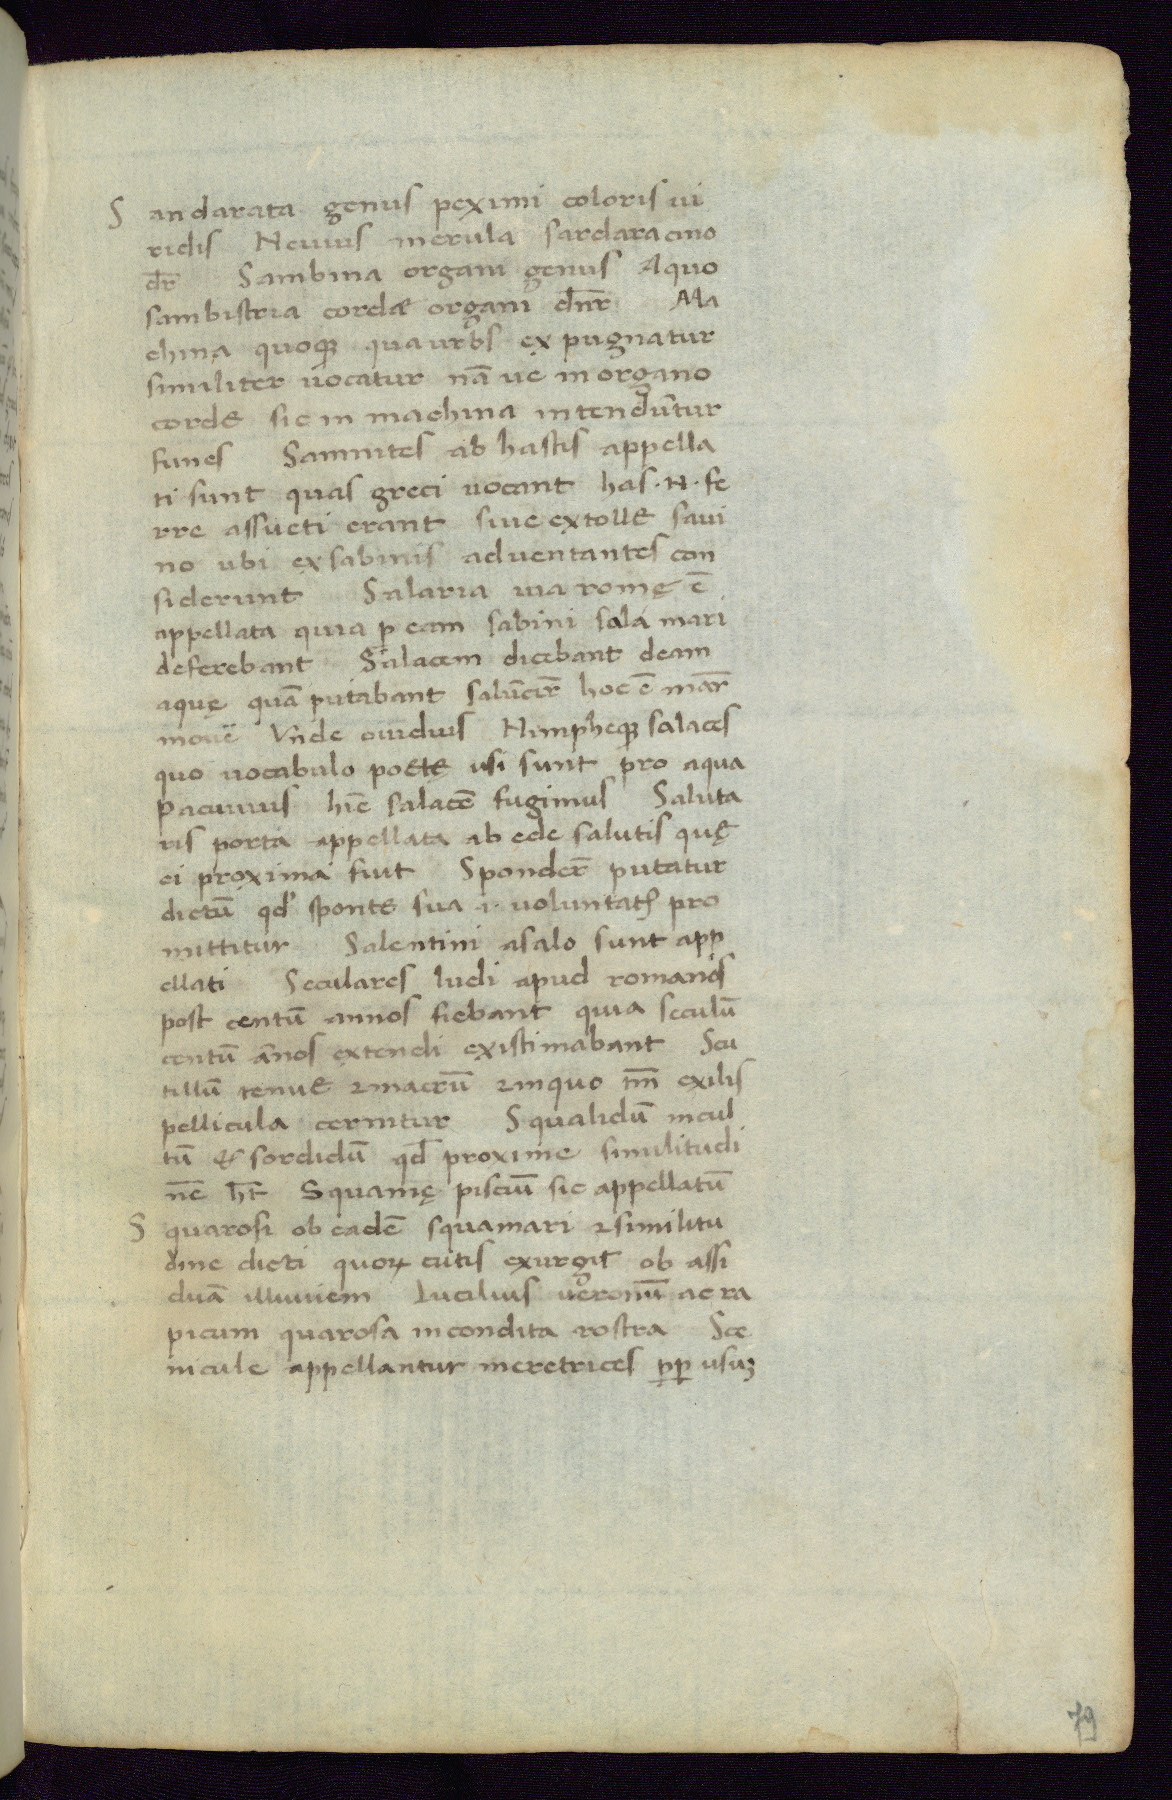 Sandarata genus peximi coloris vi
ridis Nevius merula sardaracino
dr̄ Sambina organi genus Aquo
sambistria cordæ organi dn̄r Ma
china quoq; qua urbs ex pugnatur
similiter vocatur nā ue in organo
corde sic in machina intendūtur
funes Samnites ab hastis appella
ti sunt quas greci vocant has .N. fe
rre assueti erant sive extolle savi
no ubi exsabinis adventantes con
siderunt Salaria via romę ē
appellata quia p̱ eam sabini sala mari
deferebant Salacem dicebant deam
aquę quā putabant salūcēr hoc ē mār
movē Vn̄de ovidius Nimpheq; salaces
quo vocabulo poetę usi sunt pro aqua
Pacuvius hīc salacē fugimus Saluta
ris porta appellata ab ede salutis quę
ei proxima fiut Spondēr putatur
dictū qd̓ sponte sua .i. voluntatꝭ pro
mittitur Salentini asalo sunt app̱
ellati Seculares ludi apud romanos
post centū annos fiebant quia seculū
centū ān̄os extendi existimabant Scu
tillū tenue ⁊macrū ⁊inquo tm̄ exilis
pellicula cernitur Squalidū incul
tū & sordidū qd̄ proxime similitudi
nē h̄t Squamę pisciū sic appellatū
Squarosi ob eadē squamari ⁊similitu
dine dicti quoꝝ cutis exurgit ob assi
duā illuviem Lucilius veronū ac ra
picum quarosa incondita rostra Sce
nicule appellantur meretrices p̱p̱ usuꝫ
79